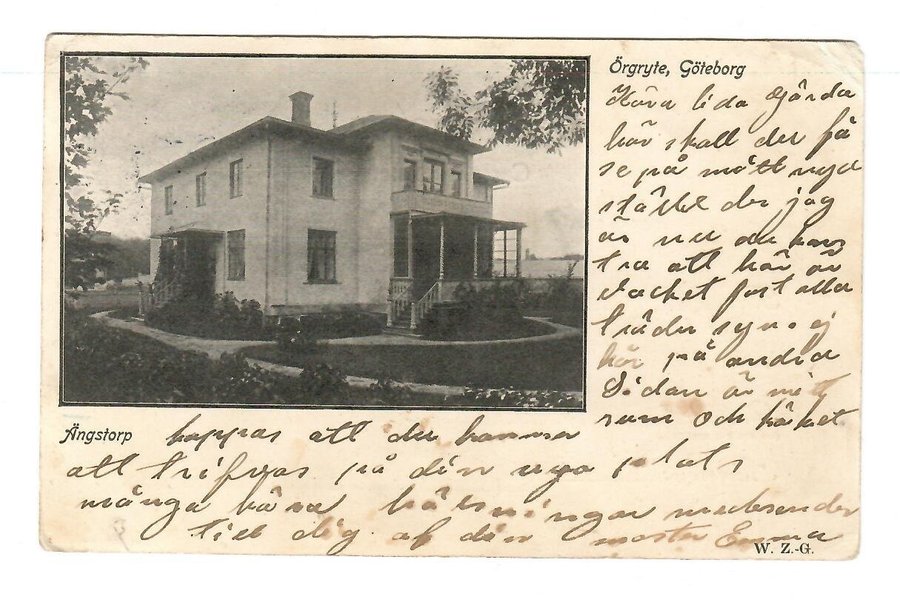 Örgryte, Göteborg
Kära lida Gjärda
här skall du få
se på mitt nya
stället der jag
är nu du kan
tro att här är
vacket fast alla
träder syns ej
här på andra
Sidan är mitt
rum och köket
Ängstorp
hoppas att du kommer
att trifvas på din nya plats
många kära hälsningar medsender
till dig af din moster Emma
W. Z.-G.